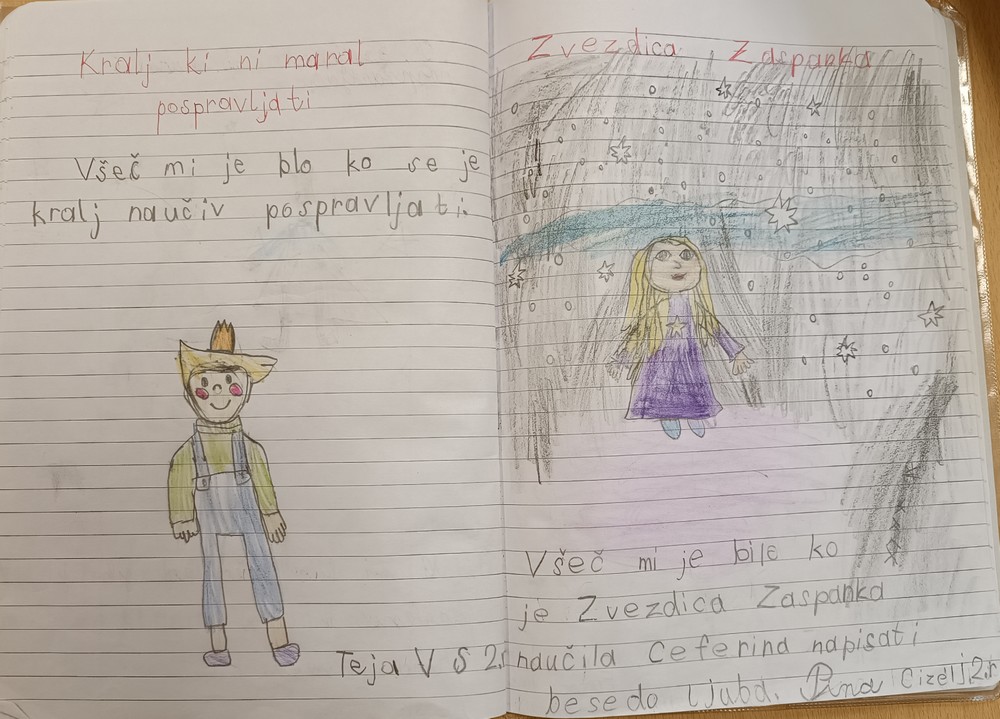 Kralj ki ni maral
pospravljati
Všeč mi je blo ko se je
kralj naučiv pospravljati.
Teja V S 2.r
Zvezdica Zaspanka
Všeč mi je bile ko
je Zvezdica Zaspanka
naučila Ceferina napisati
besedo ljuba. Pina Cizelj, 2.r